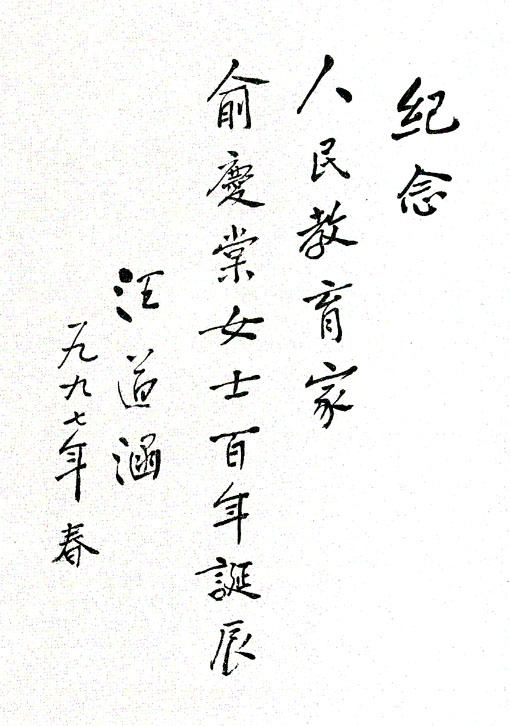 紀念
人民教育家
俞慶棠女士百年誕辰
汪道涵
一九九七年春